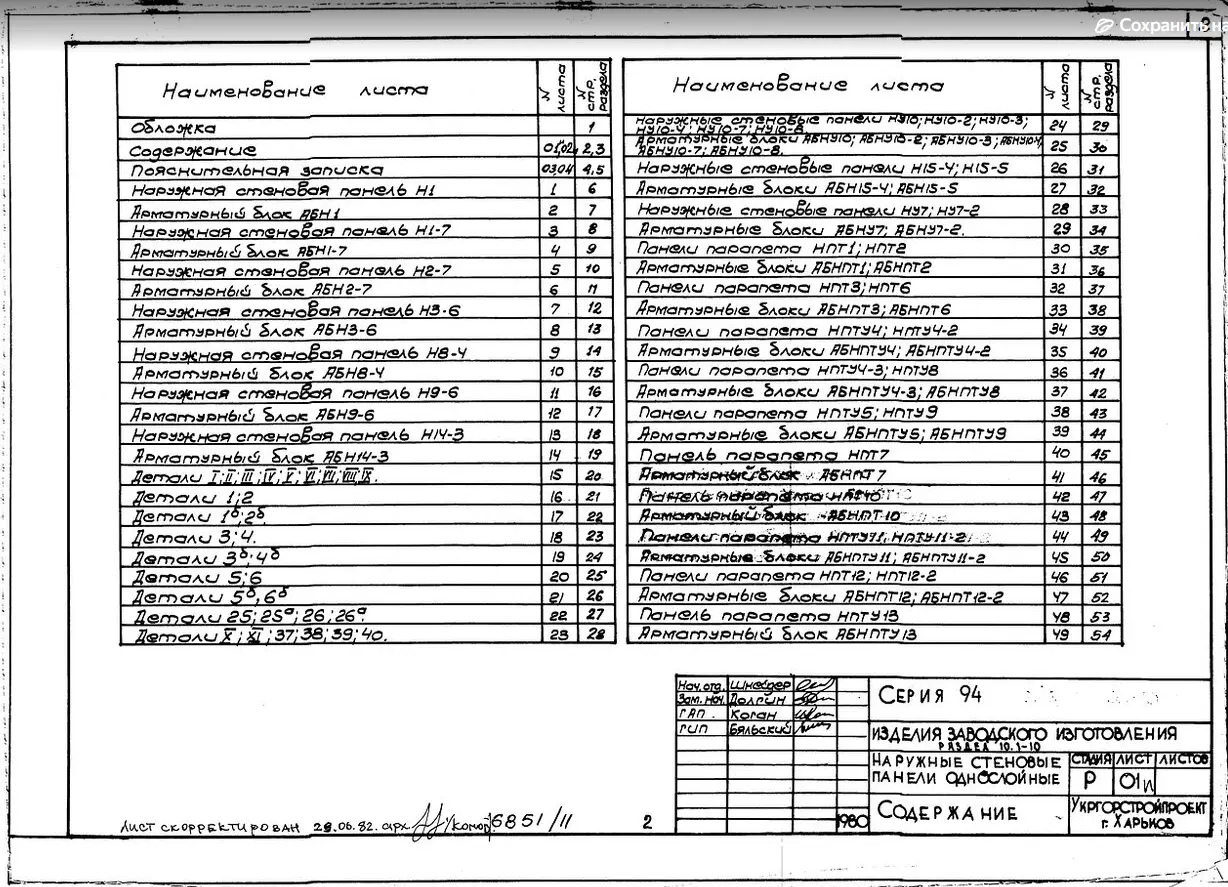 Сохранить на
Наименование листа | N листа | N стр. раздела
Обложка | | 1
Содержание | 01,02 | 2,3
Пояснительная записка | 03,04 | 4,5
Наружная стеновая панель Н1 | 1 | 6
Арматурный блок АБН1 | 2 | 7
Наружная стеновая панель Н1-7 | 3 | 8
Арматурный блок АБН1-7 | 4 | 9
Наружная стеновая панель Н2-7 | 5 | 10
Арматурный блок АБН2-7 | 6 | 11
Наружная стеновая панель Н3-6 | 7 | 12
Арматурный блок АБН3-6 | 8 | 13
Наружная стеновая панель Н8-4 | 9 | 14
Арматурный блок АБН8-4 | 10 | 15
Наружная стеновая панель Н9-6 | 11 | 16
Арматурный блок АБН9-6 | 12 | 17
Наружная стеновая панель Н14-3 | 13 | 18
Арматурный блок АБН14-3 | 14 | 19
Детали I; II; III; IV; V; VI; VII; VIII; IX. | 15 | 20
Детали 1; 2 | 16 | 21
Детали 1б; 2б. | 17 | 22
Детали 3; 4. | 18 | 23
Детали 3б; 4б | 19 | 24
Детали 5; 6 | 20 | 25
Детали 5б, 6б | 21 | 26
Детали 25; 25а; 26; 26а | 22 | 27
Детали X; XI; 37; 38; 39; 40. | 23 | 28
Наименование листа | N листа | N стр. раздела
Наружные стеновые панели НУ10; НУ10-2; НУ10-3;
НУ10-4; НУ10-7; НУ10-8 | 24 | 29
Арматурные блоки АБНУ10; АБНУ10-2; АБНУ10-3; АБНУ10-4;
АБНУ10-7; АБНУ10-8. | 25 | 30
Наружные стеновые панели Н15-4; Н15-5 | 26 | 31
Арматурные блоки АБН15-4; АБН15-5 | 27 | 32
Наружные стеновые панели НУ7; НУ7-2 | 28 | 33
Арматурные блоки АБНУ7; АБНУ7-2. | 29 | 34
Панели парапета НПТ1; НПТ2 | 30 | 35
Арматурные блоки АБНПТ1; АБНПТ2 | 31 | 36
Панели парапета НПТ3; НПТ6 | 32 | 37
Арматурные блоки АБНПТ3; АБНПТ6 | 33 | 38
Панели парапета НПТУ4; НПТУ4-2 | 34 | 39
Арматурные блоки АБНПТУ4; АБНПТУ4-2 | 35 | 40
Панели парапета НПТУ4-3; НПТУ8 | 36 | 41
Арматурные блоки АБНПТУ4-3; АБНПТУ8 | 37 | 42
Панели парапета НПТУ5; НПТУ9 | 38 | 43
Арматурные блоки АБНПТУ5; АБНПТУ9 | 39 | 44
Панель парапета НПТ7 | 40 | 45
Арматурный блок АБНПТ7 | 41 | 46
Панель парапета НПТ10 | 42 | 47
Арматурный блок АБНПТ10 | 43 | 48
Панели парапета НПТУ11, НПТУ11-2 | 44 | 49
Арматурные блоки АБНПТУ11; АБНПТУ11-2 | 45 | 50
Панели парапета НПТ12; НПТ12-2 | 46 | 51
Арматурные блоки АБНПТ12; АБНПТ12-2 | 47 | 52
Панель парапета НПТУ13 | 48 | 53
Арматурный блок АБНПТУ13 | 49 | 54
Нач. отд. Шнейдер
Зам. нач. Долгин
ГАП. Коган
ГИП Бяльский
1980
Серия 94
ИЗДЕЛИЯ ЗАВОДСКОГО ИЗГОТОВЛЕНИЯ
РАЗДЕЛ 10.1-10
НАРУЖНЫЕ СТЕНОВЫЕ
ПАНЕЛИ ОДНОСЛОЙНЫЕ
СТАДИЯ ЛИСТ ЛИСТОВ
Р 01и
СОДЕРЖАНИЕ
УКРГОРСТРОЙПРОЕКТ
г. ХАРЬКОВ
ЛИСТ СКОРРЕКТИРОВАН 29.06.82. арх 6851/11
2